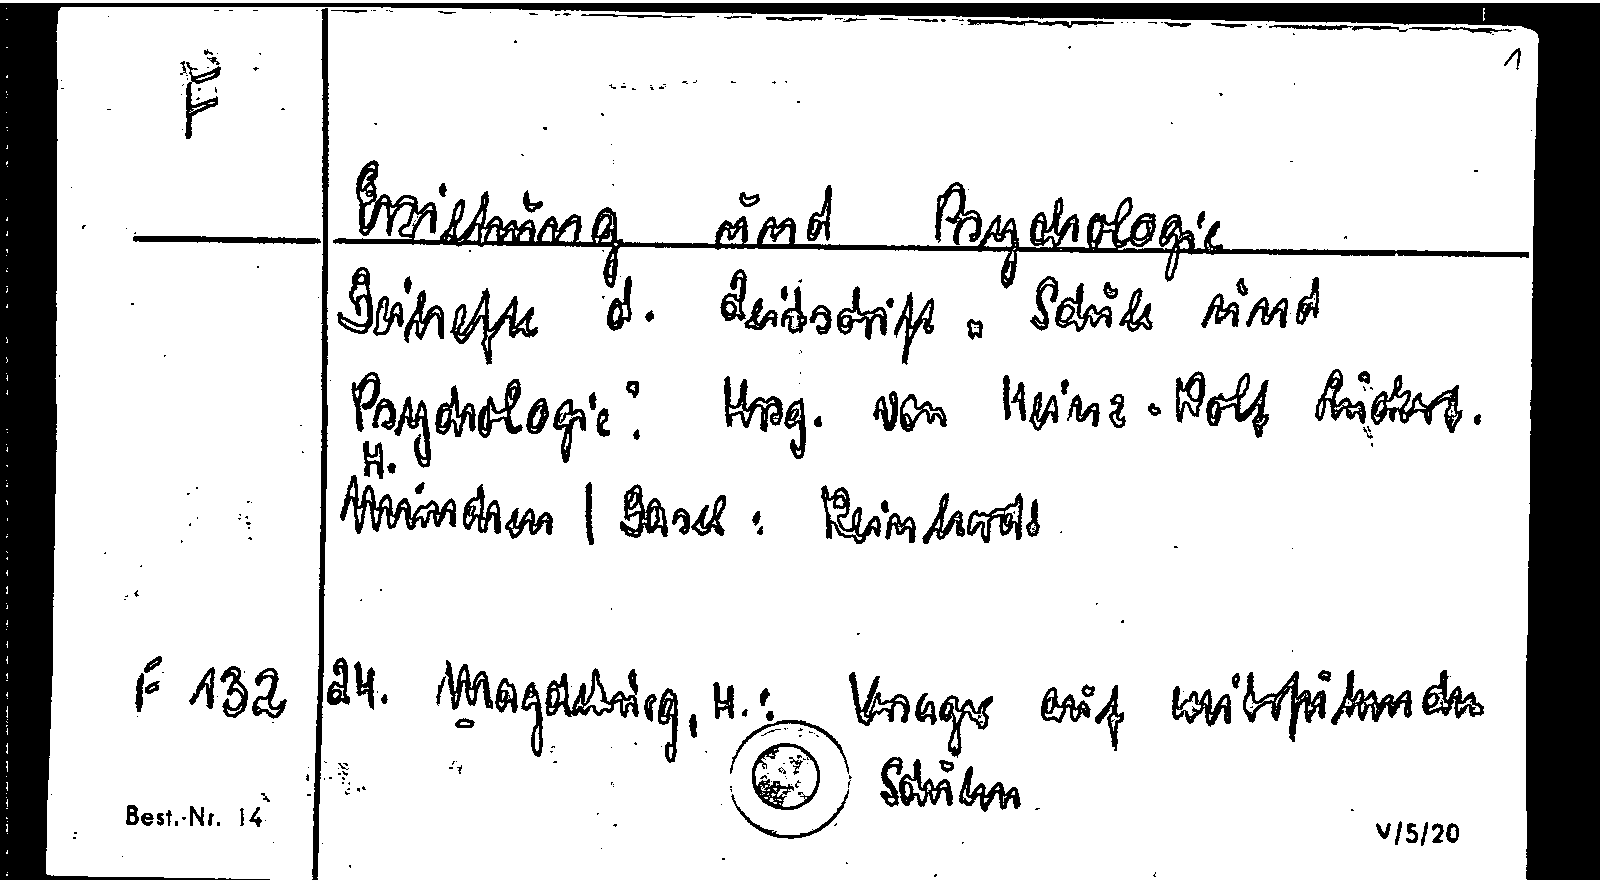 F 1
Erziehung und Psychologie
Beihefte d. Zeitschrift „Schule und
Psychologie“. Hrsg. von Heinz-Rolf Lückert.
H.
München / Basel: Reinhardt
F 132 24. Magdeburg, H.: Versager auf weiterführenden
Schulen
Best.-Nr. 14
V/5/20